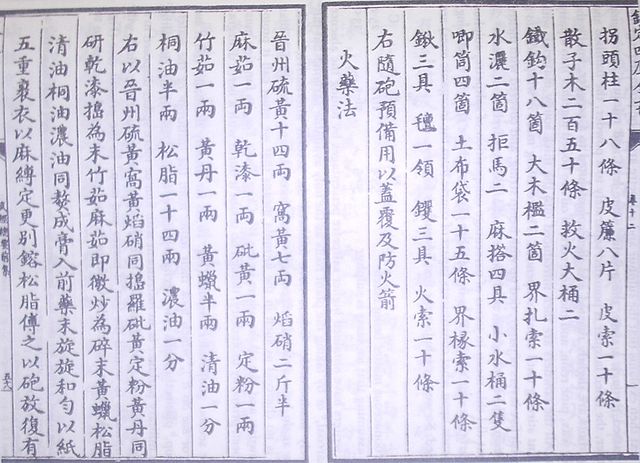 拐頭柱一十八條　皮簾八片　皮索一十條
散子木二百五十條　救火大桶二
鐵鈎十八箇　大木檻二箇　界扎索一十條
水濃二箇　拒馬二　麻搭四具　小水桶二隻
唧筒四箇　土布袋一十五條　界椽索一十條
鍬三具　氊一領　钁三具　火索一十條
右隨砲預備用以蓋覆及防火箭
火藥法
晉州硫黃十四兩　窩黃七兩　焰硝二斤半
麻茹一兩　乾漆一兩　砒黃一兩　定粉一兩
竹茹一兩　黃丹一兩　黃蠟半兩　清油一分
桐油半兩　松脂一十四兩　濃油一分
右以晉州硫黃窩黃焰硝同搗羅砒黃定粉黃丹同
研乾漆搗為末竹茹麻茹即微炒為碎末黃蠟松脂
清油桐油濃油同熬成膏入前藥末旋旋和勻以紙
五重裹衣以麻縛定更別鎔松脂傅之以砲放復有
卷十二
武經總要前集